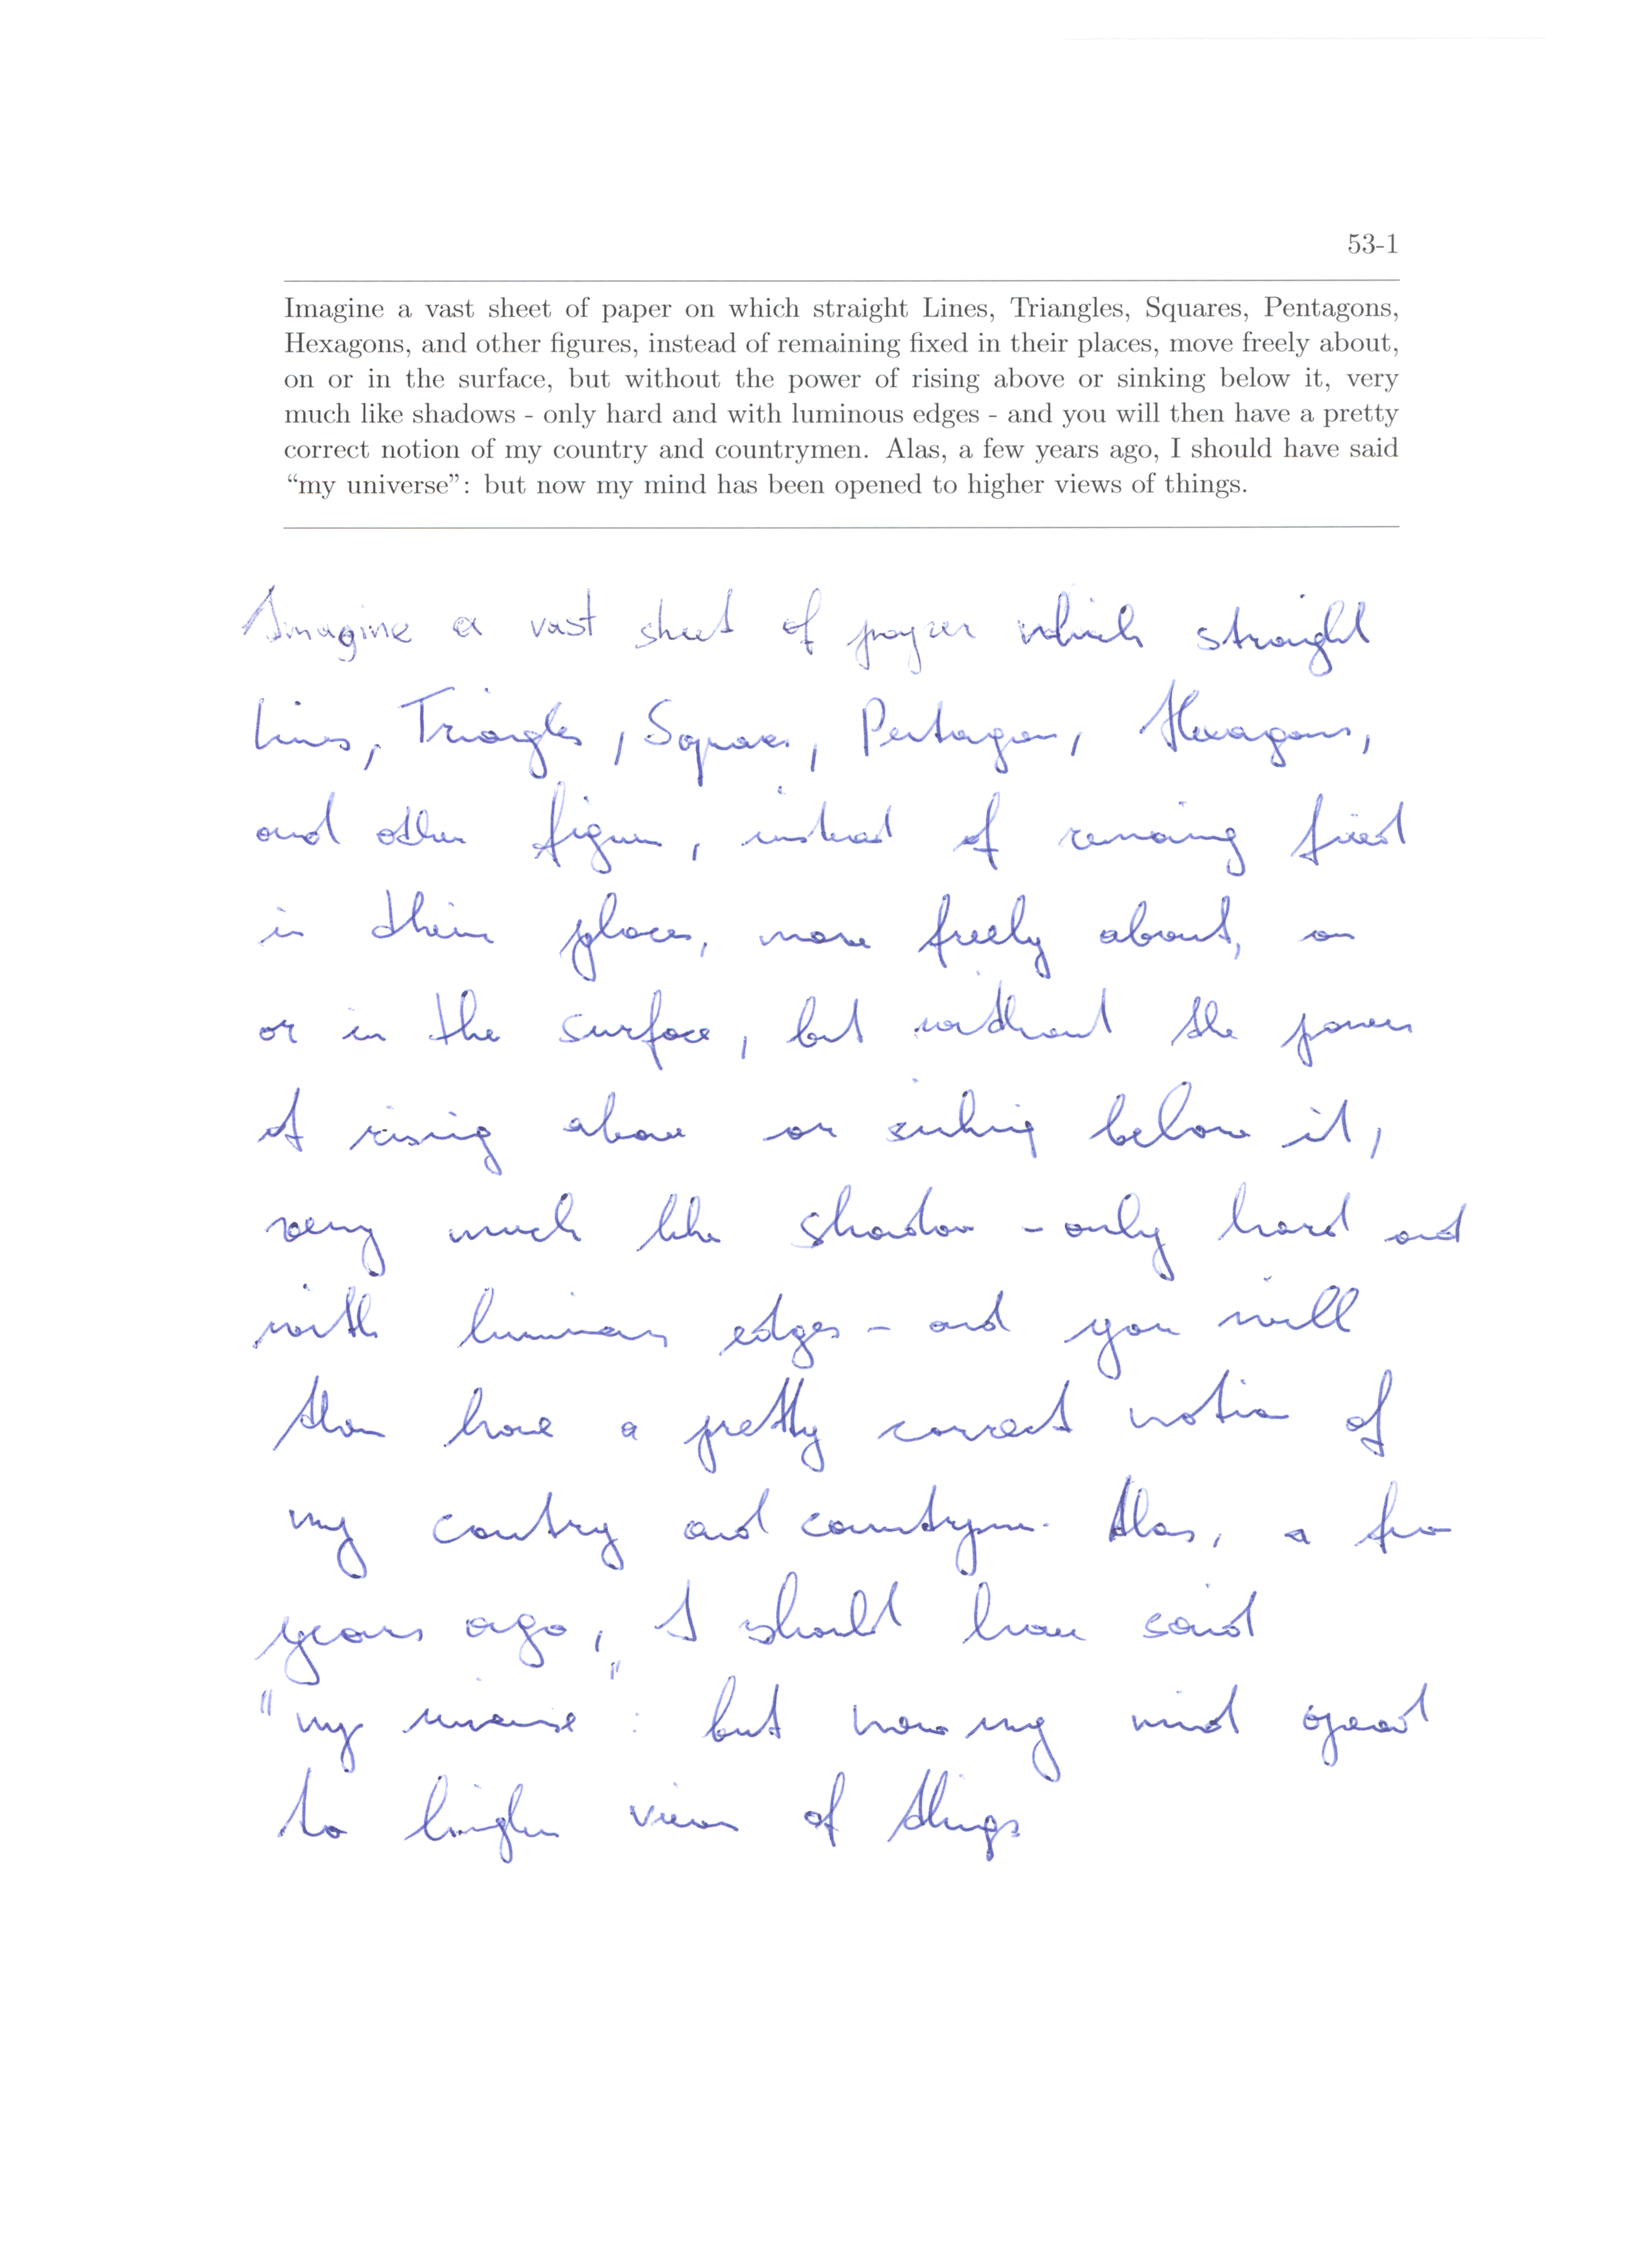 53-1
Imagine a vast sheet of paper on which straight Lines, Triangles, Squares, Pentagons,
Hexagons, and other figures, instead of remaining fixed in their places, move freely about,
on or in the surface, but without the power of rising above or sinking below it, very
much like shadows - only hard and with luminous edges - and you will then have a pretty
correct notion of my country and countrymen. Alas, a few years ago, I should have said
“my universe”: but now my mind has been opened to higher views of things.
Imagine a vast sheet of paper which straight
Lines, Triangles, Squares, Pentagons, Hexagons,
and other figures, instead of remaining fixed
in their places, move freely about, on
or in the surface, but without the power
of rising above or sinking below it,
very much like shadow - only hard and
with luminous edges - and you will
then have a pretty correct notion of
my country and countrymen. Alas, a few
years ago, I should have said
"my universe": but now my mind opened
to higher views of things